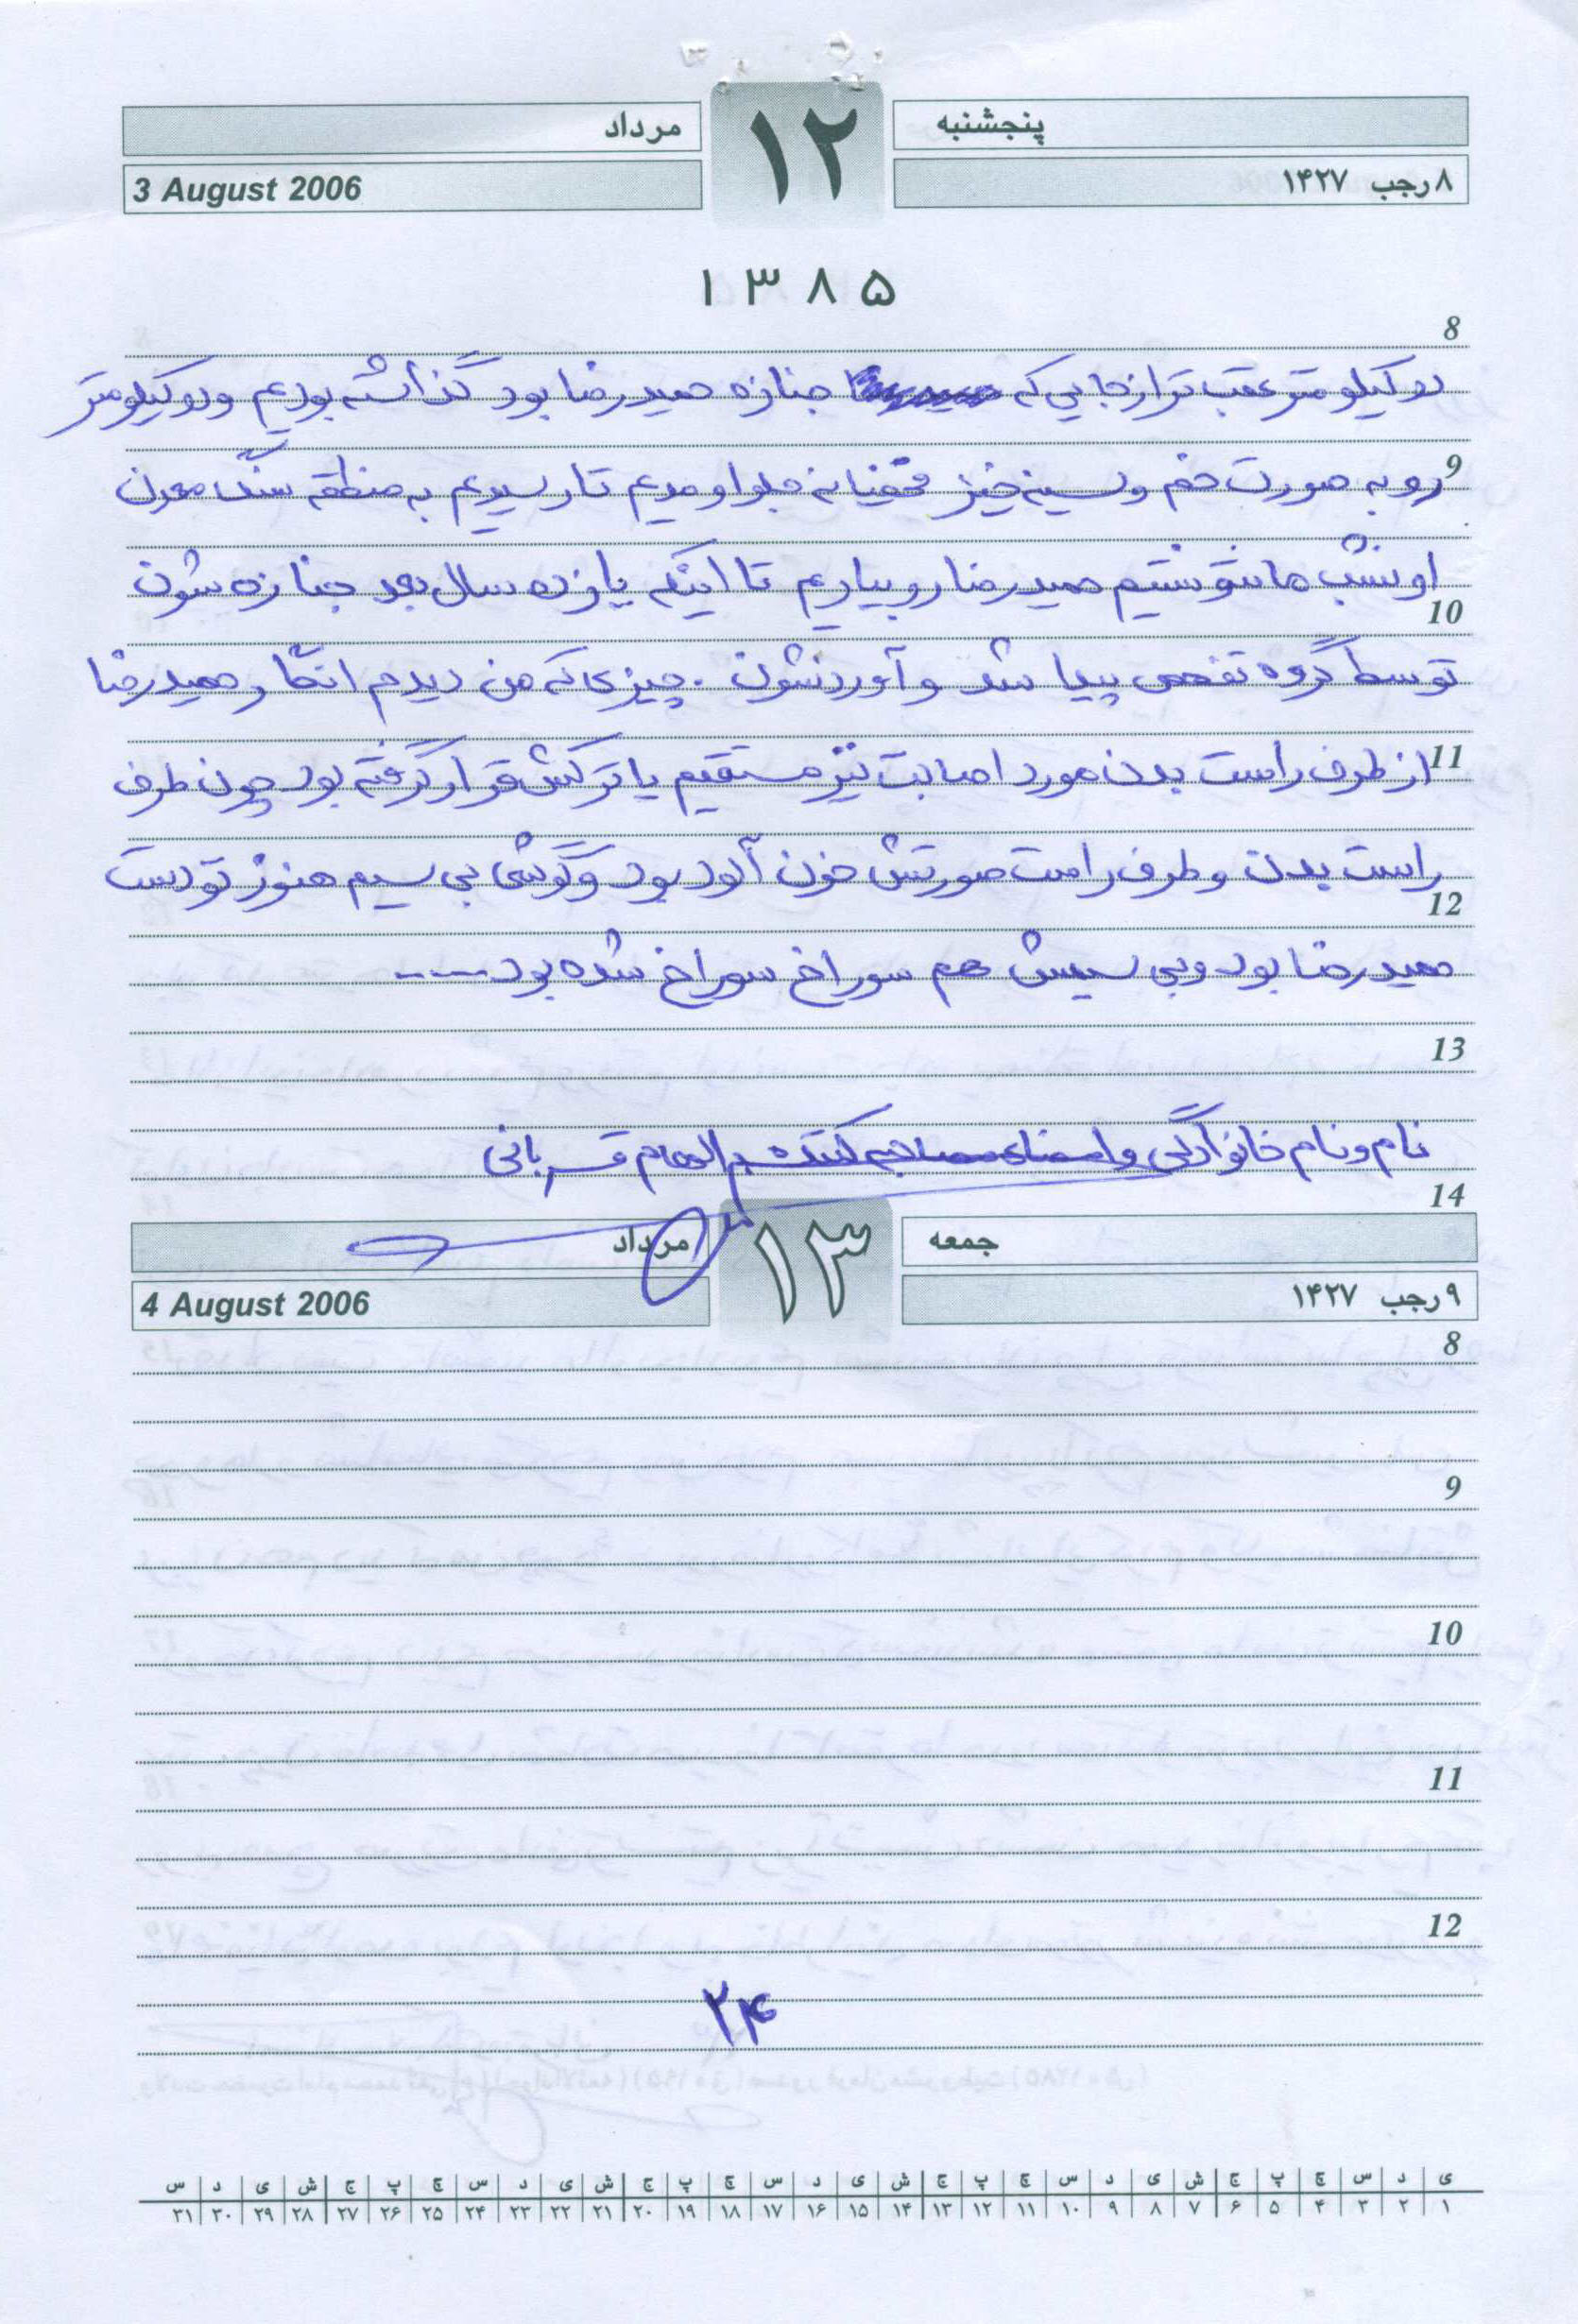 پنجشنبه ۱۲ مرداد
۸ رجب ۱۴۲۷ 3 August 2006
۱۳۸۵
8
دو کیلومتر عقب تر از جایی که جنازه حمیدرضا بود گذاشته بودیم و دو کیلومتر
9
رو به صورت خم و سینه خیز مخفیانه جلو اومدیم تا رسیدیم به منطقه سنگ معدن
اونشب ما نتونستیم حمیدرضا رو بیاریم تا اینکه یازده سال بعد جنازه شون
10
توسط گروه تفحص پیدا شد و آوردنشون . چیزی که من دیدم انگار حمیدرضا
11
از طرف راست بدن مورد اصابت تیر مستقیم یا ترکش قرار گرفته بود چون طرف
راست بدن و طرف راست صورتش خون آلود بود و گوشی بی سیم هنوز تو دست
12
حمیدرضا بود وبی سیمش هم سوراخ سوراخ شده بود----
13
نام و نام خانوادگی قربانی
14
جمعه ۱۳ مرداد
۹ رجب ۱۴۲۷ 4 August 2006
8
9
10
11
12
۲۴
ی د س چ پ ج ش ی د س چ پ ج ش ی د س چ پ ج ش ی د س چ پ ج ش ی د س
۱ ۲ ۳ ۴ ۵ ۶ ۷ ۸ ۹ ۱۰ ۱۱ ۱۲ ۱۳ ۱۴ ۱۵ ۱۶ ۱۷ ۱۸ ۱۹ ۲۰ ۲۱ ۲۲ ۲۳ ۲۴ ۲۵ ۲۶ ۲۷ ۲۸ ۲۹ ۳۰ ۳۱